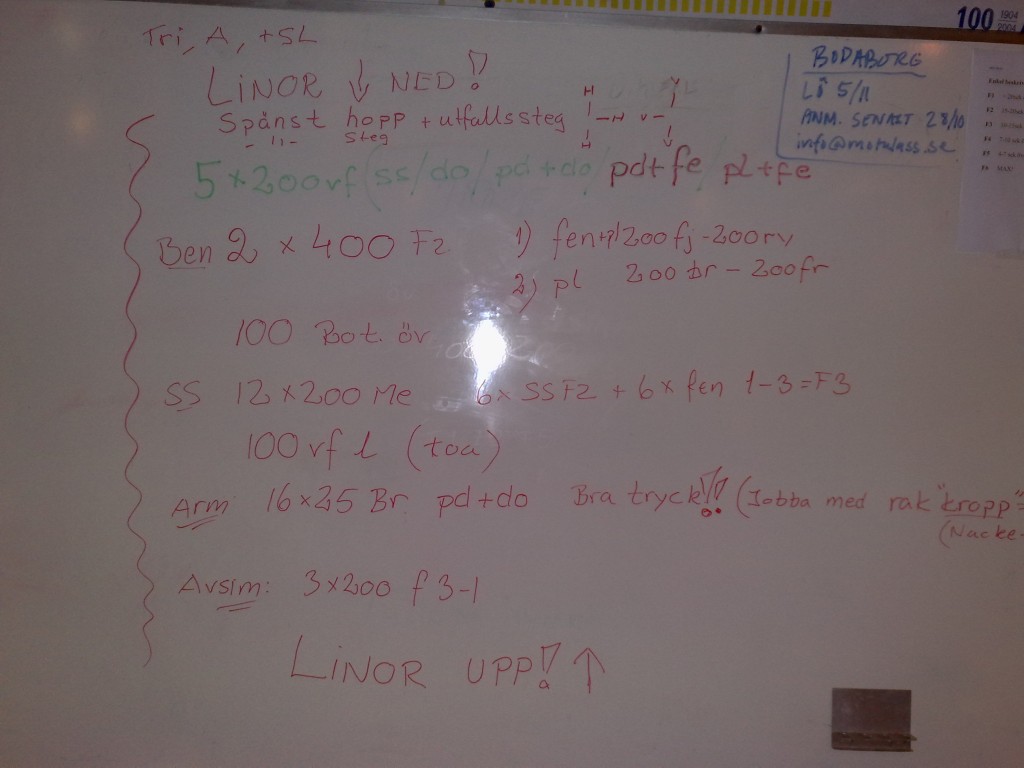 100 1904 2004
Tri, A, +SL
LINOR ↓ NED!
Spänst hopp + utfallssteg
- 11 - steg
H
|-H
H
Y
V-
V
BODABORG
LÖ 5/11
ANM. SENAST 28/10
info@motalass.se
5 x 200 vf (ss/do/pd+do/pd+fe/pl+fe
Ben 2 x 400 F2 1) fen+pl 200 fj - 200 rv
2) pl 200 br - 200 fr
100 Bot. öv
SS 12 x 200 Me 6x SSF2 + 6x fen 1-3=F3
100 vf l (toa)
Arm 16x25 Br. pd+do Bra tryck!! (Jobba med rak "kropp"=
(Nacke-
Avsim: 3x200 f 3-1
LINOR UPP! ↑